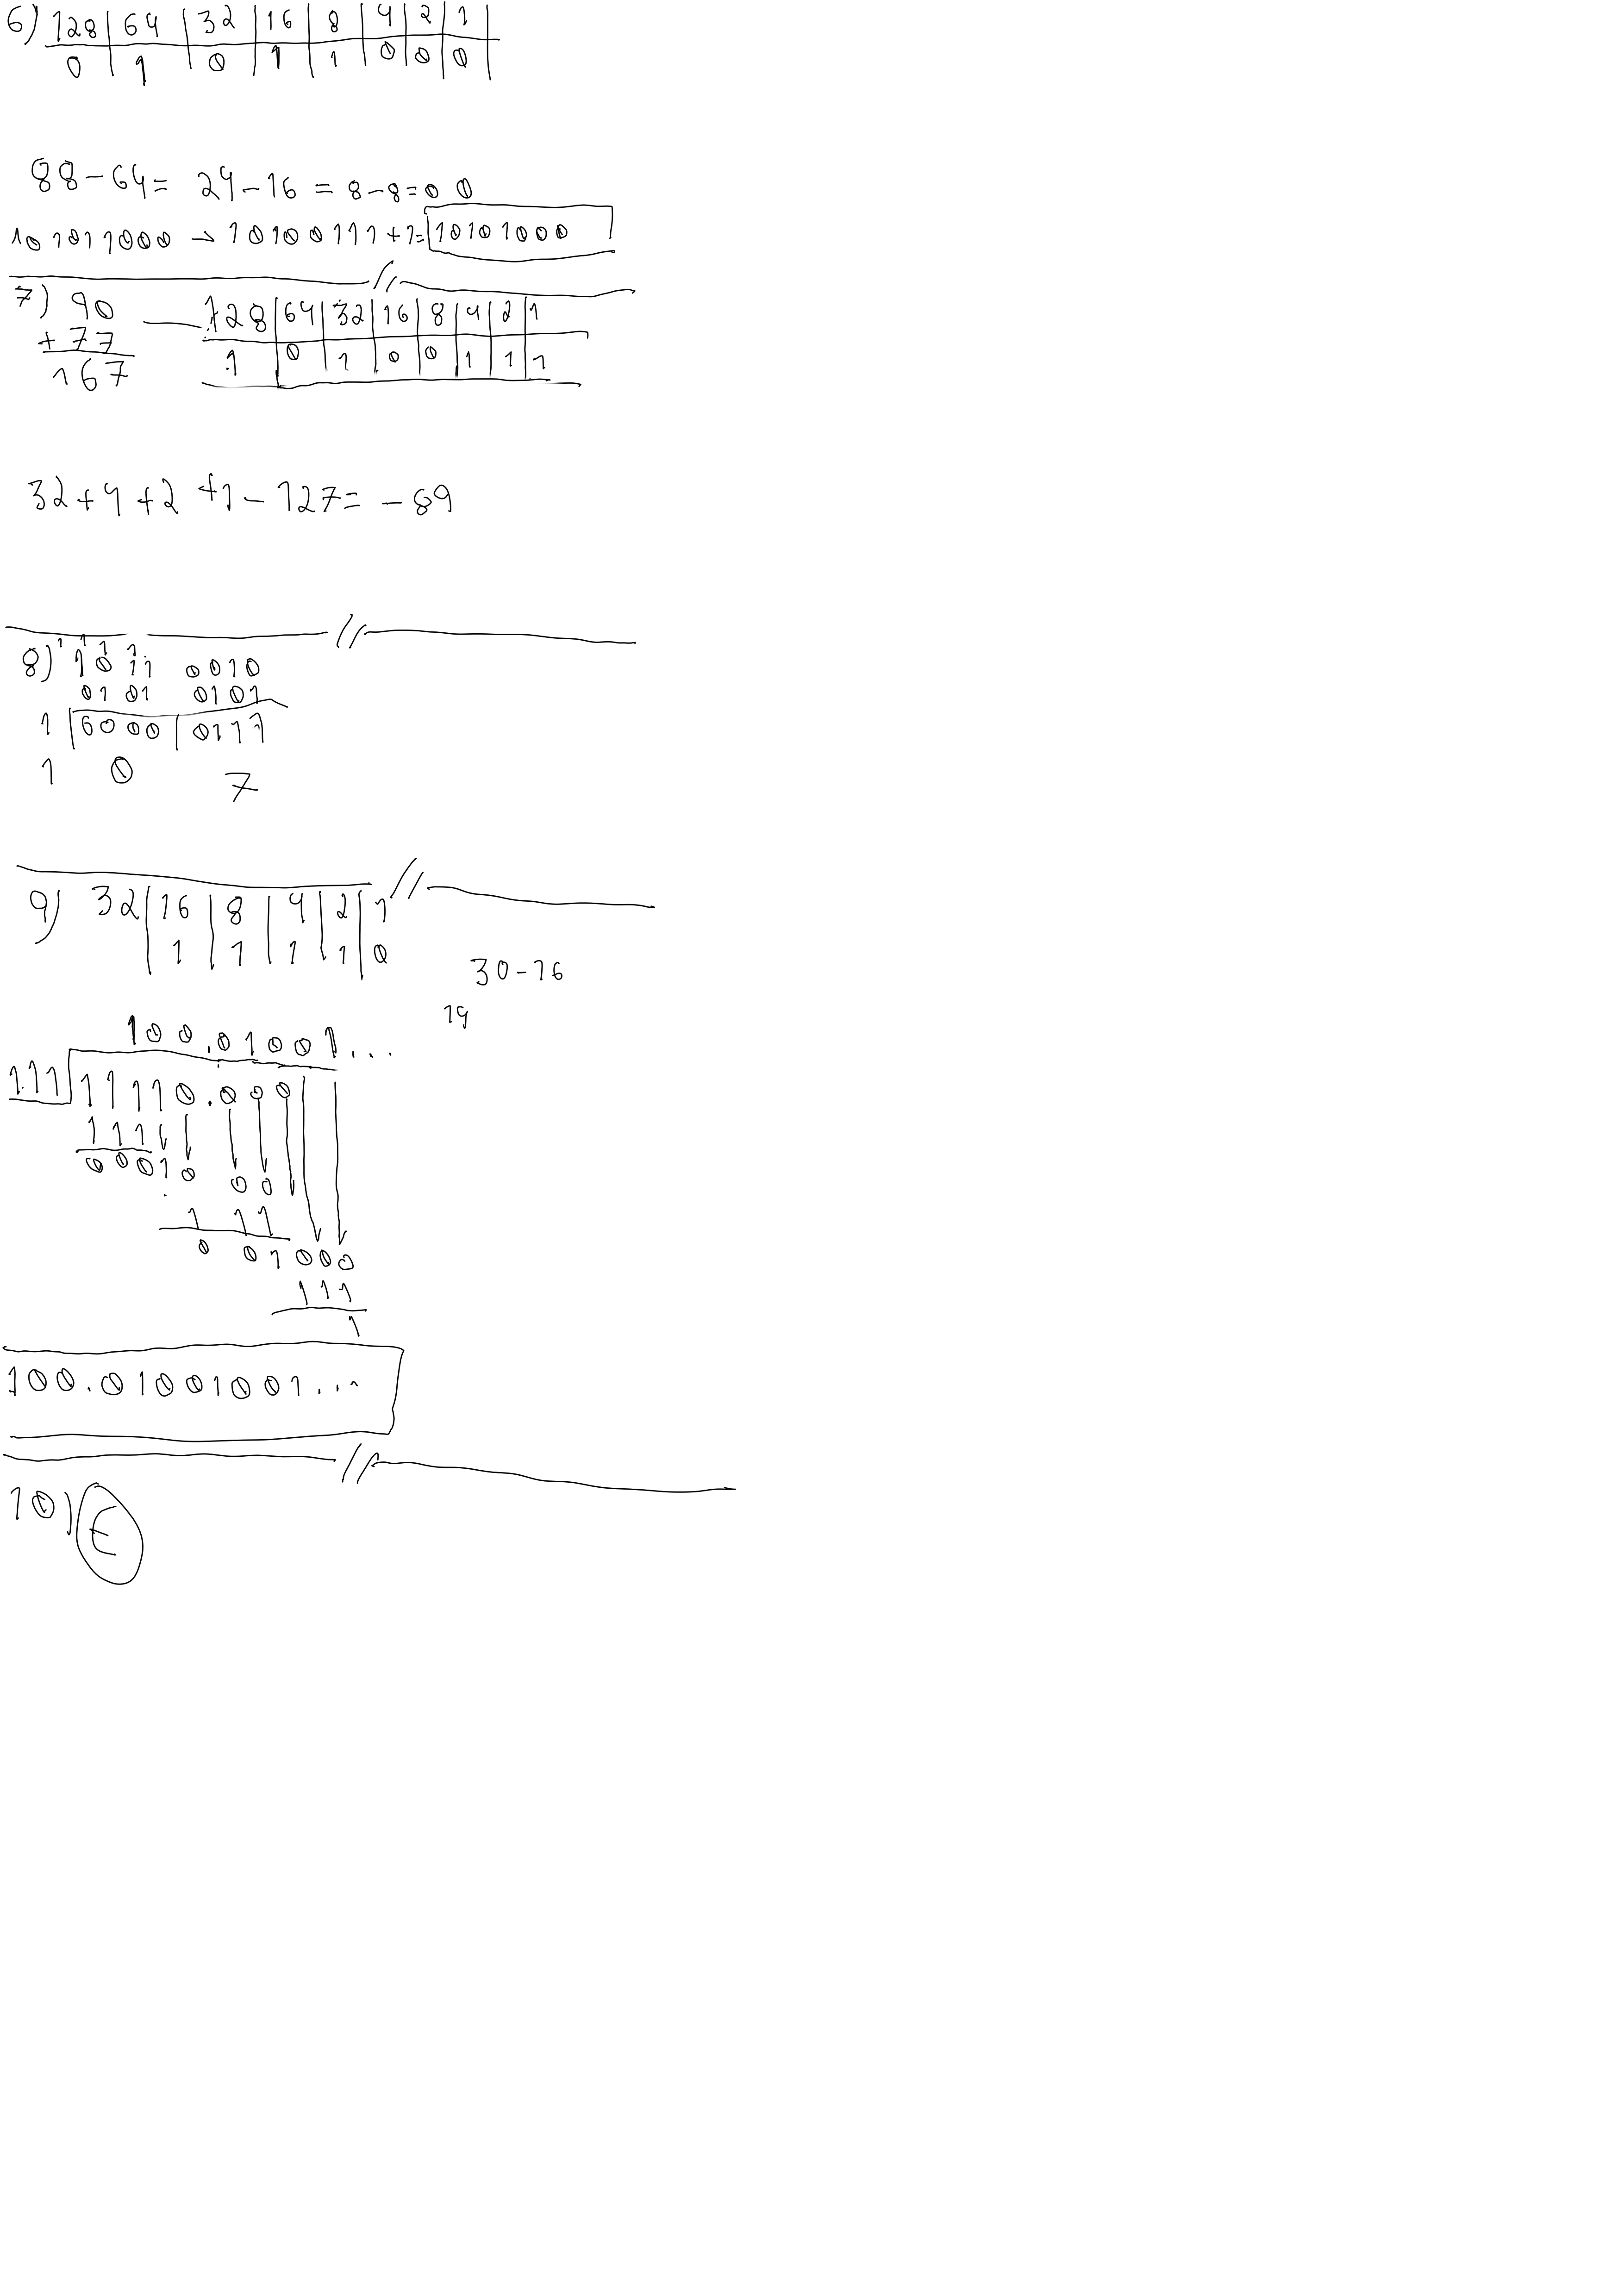 6) 128 | 64 | 32 | 16 | 8 | 4 | 2 | 1
0 | 1 | 0 | 1 | 1 | 0 | 0 | 0
88-64= 24-16 = 8-8=0 0
101011000 → 10100111+1= 10101000
7) 90 128 | 64 | 32 | 16 | 8 | 4 | 2 | 1
+77 1 | 0 | 1 | 0 | 0 | 1 | 1 | 1
167
32+4+2+1-127= -89
1 1 1 1
8) 1011 0010
0101 0101
1 | 0000 | 0111
1 0 7
9) 32 | 16 | 8 | 4 | 2 | 1
1 | 1 | 1 | 1 | 0
30-16
14
100.01001...
111 11110.000
111
00010 00
1 11
0 01000
111
1
100.01001001...
10) E